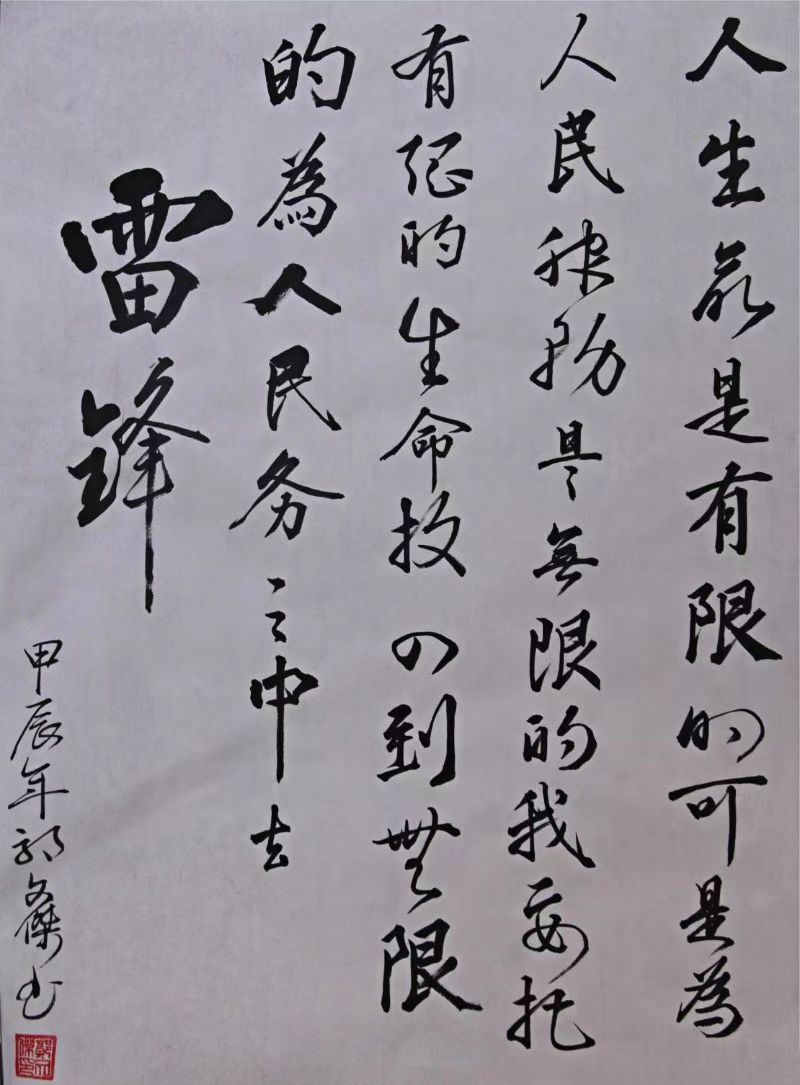 人生是有限的可是為
人民服務是無限的我要把
有限的生命投入到無限
的為人民务之中去
雷鋒
甲辰年郭文傑书